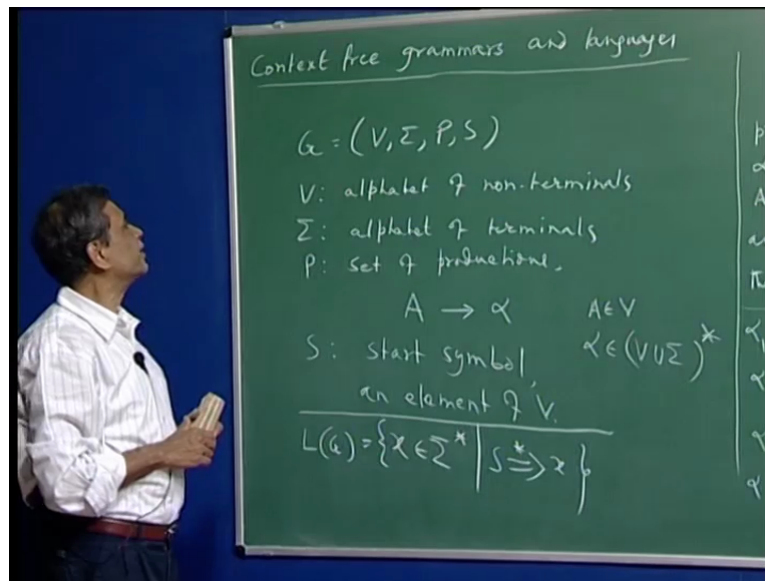 Context free grammars and languages
G = (V, Σ, P, S)
V: alphabet of non-terminals
Σ: alphabet of terminals
P: set of productions.
A → α A ∈ V
S: start symbol, α ∈ (V ∪ Σ)*
an element of V.
L(G) = {x ∈ Σ* | S ⇒* x}